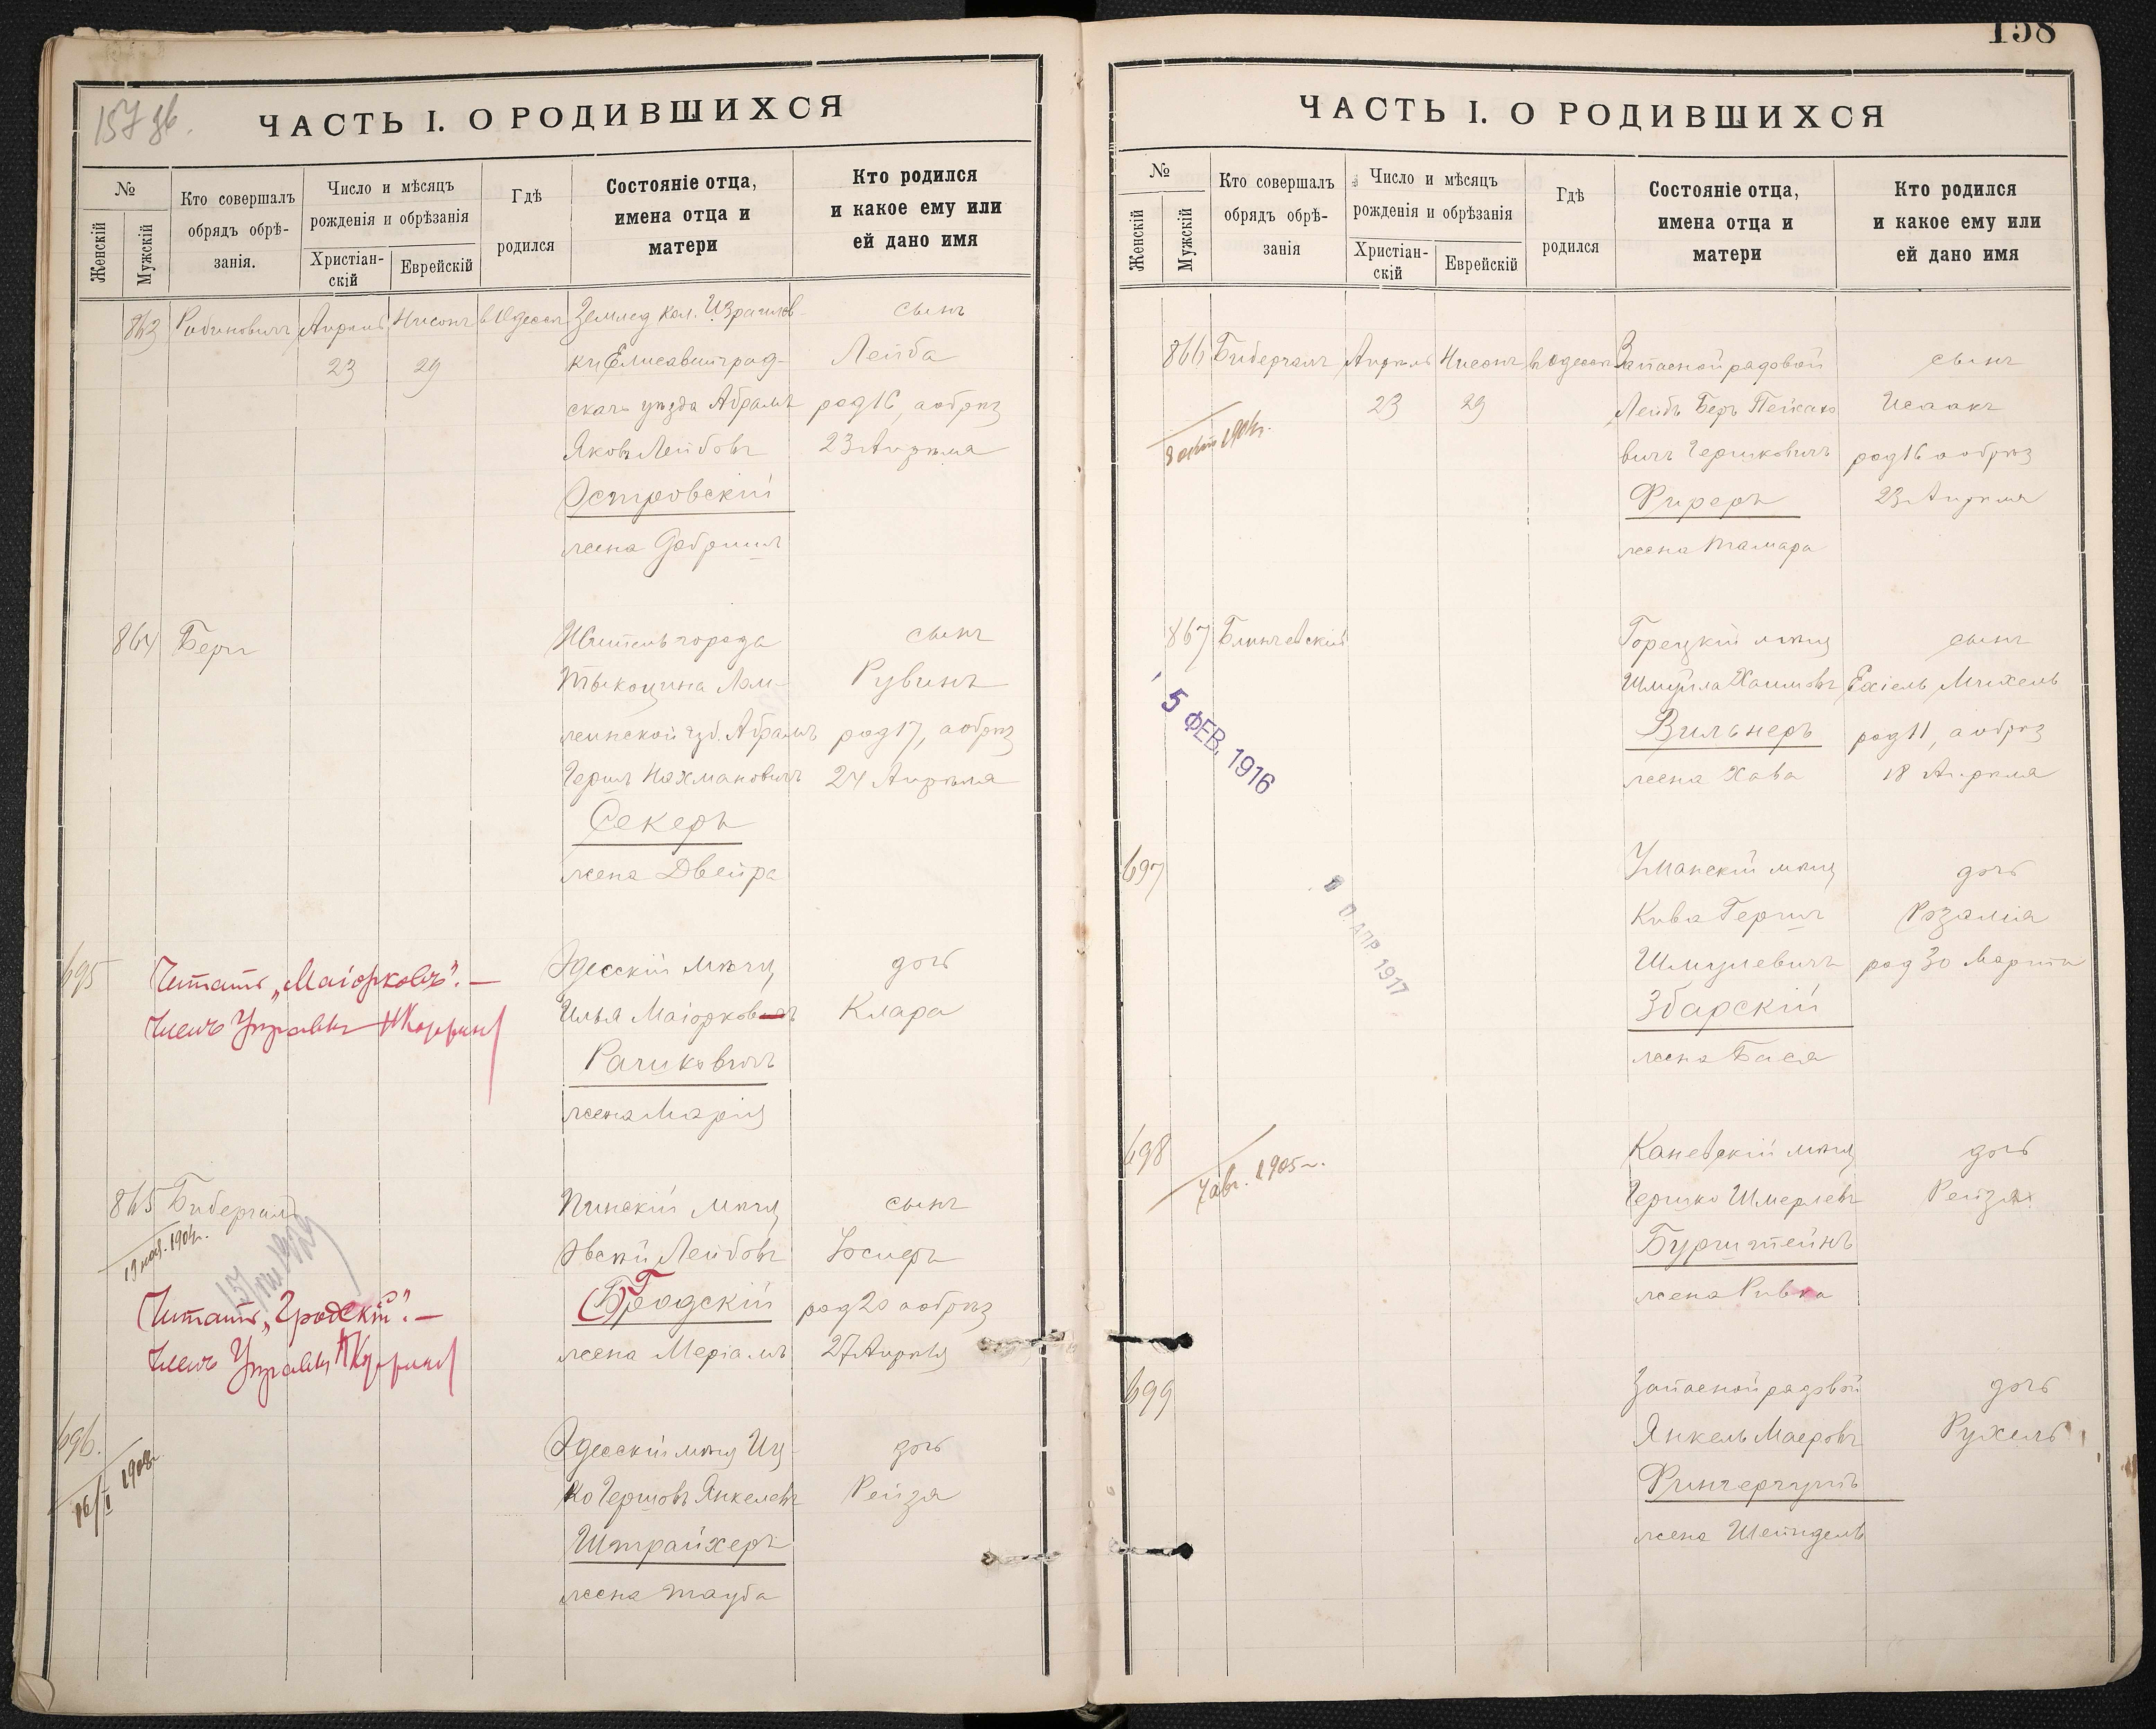 157 зв.
ЧАСТЬ I. О РОДИВШИХСЯ
№
Женскій
Мужскій
Кто совершалъ
обрядъ обрѣ-
занія.
Число и мѣсяцъ
рожденія и обрѣзанія
Христіан-
скій
Еврейскій
Гдѣ
родился
Состояніе отца,
имена отца и
матери
Кто родился
и какое ему или
ей дано имя
863 Рабиновичъ Апрѣль Нисонъ въ Одессѣ Землед. кол. Израилев- сынъ
23 29 ки Елисаветград- Лейба
скаго уѣзда Абрамъ род 16, а обрѣз
Яковъ Лейбовъ 23 Апрѣля
Островскій
жена Габриша
864 Бергъ Житель города сынъ
Тыкоцина Лом- Рувинъ
жинской губ. Абрамъ род 17, а обрѣз
Гершъ Нахмановичъ 24 Апрѣля
Секеръ
жена Двейра
695 Одесскій мѣщ дочь
Читать „Маіорковъ". —
Илья Маіорковъ Клара
Членъ Управы
Рашковичъ
жена Марія
865 Бибергалъ Пинскій мѣщ сынъ
19 1904г.
Овсѣй Лейбовъ Іосифъ
Бродскій род 20 а обрѣз
Г
Читать „Гродскій". —
Членъ Управы
жена Меріамъ 27 Апрѣля
696. Одесскій мѣщ Иц- дочь
16/I 1908г.
ко Гершовъ Янкелевъ Рейза
Штрайхеръ
жена Тауба
158
ЧАСТЬ I. О РОДИВШИХСЯ
№
Женскій
Мужскій
Кто совершалъ
обрядъ обрѣ-
занія
Число и мѣсяцъ
рожденія и обрѣзанія
Христіан-
скій
Еврейскій
Гдѣ
родился
Состояніе отца,
имена отца и
матери
Кто родился
и какое ему или
ей дано имя
866 Бибергалъ Апрѣль Нисонъ въ Одессѣ Запасной рядовой сынъ
23 29 Лейбъ Беръ Пейсахо Исаакъ
8 1904г.
вичъ Гершковичъ род 16 а обрѣз
Фиреръ 23 Апрѣля
жена Тамара
867 Блинчевскій Горецкій мѣщ сынъ
5 ФЕВ. 1916
Шмуйла Хаимовъ Ехіель Михель
Вильнеръ род 11, а обрѣз
жена Хава 18 Апрѣля
697 Уманскій мѣщ дочь
Кива Гершъ Розалія
АПР. 1917
Шмулевичъ род 30 Марта
Збарскій
жена Бася
698 Каневскій мѣщ дочь
7 авг. 1905г.
Гершко Шмерлевъ Рейзя
Бурштейнъ
жена Ривка
699 Запасной рядовой дочь
Янкель Маеровъ Рухель
Фингергутъ
жена Шейндель